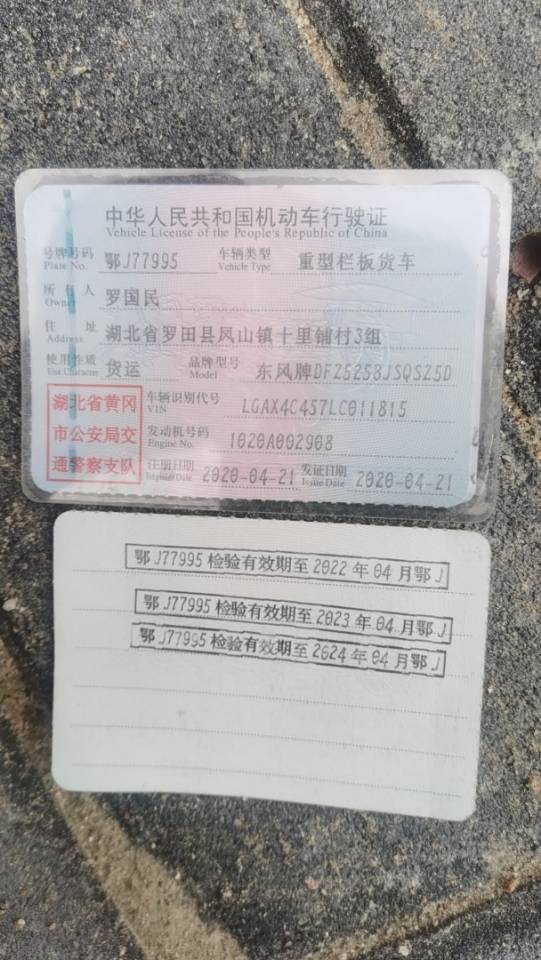 中华人民共和国机动车行驶证
Vehicle License of the People's Republic of China
号牌号码 Plate No. 鄂J77995 车辆类型 Vehicle Type 重型栏板货车
所有人 Owner 罗国民
住址 Address 湖北省罗田县凤山镇十里铺村3组
使用性质 Use Character 货运 品牌型号 Model 东风牌DFZ5258JSQSZ5D
湖北省黄冈 车辆识别代号 VIN LGAX4C457LC011815
市公安局交 发动机号码 Engine No. 1020A002908
通警察支队 注册日期 Register Date 2020-04-21 发证日期 Issue Date 2020-04-21
鄂J77995检验有效期至2022年04月鄂J
鄂J77995检验有效期至2023年04月鄂J
鄂J77995检验有效期至2024年04月鄂J